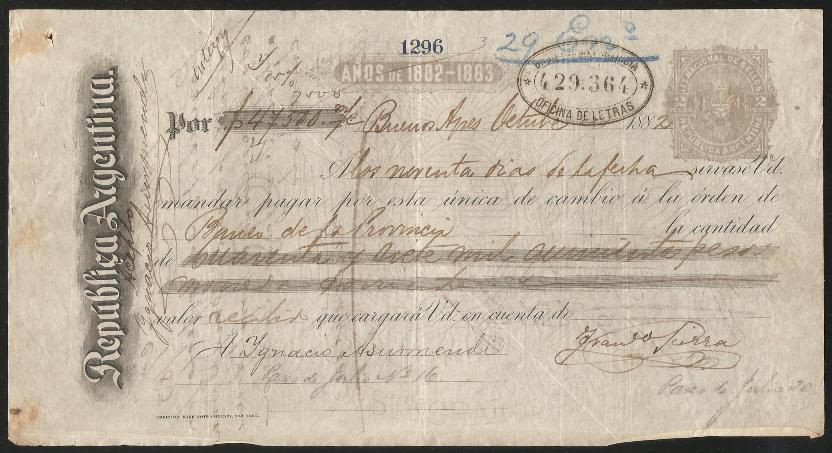 1296
29 Eno
AÑOS DE 1882-1883
429.364
OFICINA DE LETRAS
LEY NACIONAL DE SELLOS
REPUBLICA ARGENTINA
República Argentina.
Acepto
Ignacio Asurmendi
7000
Por $ 47500 m/c Buenos Ayres Octubre 1882
A los noventa dias de la fecha sirvase Vd.
mandar pagar por esta única de cambio á la órden de
Banco de la Provincia la cantidad
de cuarenta y siete mil quinientos pesos
moneda corriente
valor recibido que cargará Vd. en cuenta de
A Ygnacio Asurmendi
Franco Sierra
Paseo de Julio No 16
Paseo de Julio 20
AMERICAN BANK NOTE COMPANY, NEW YORK.